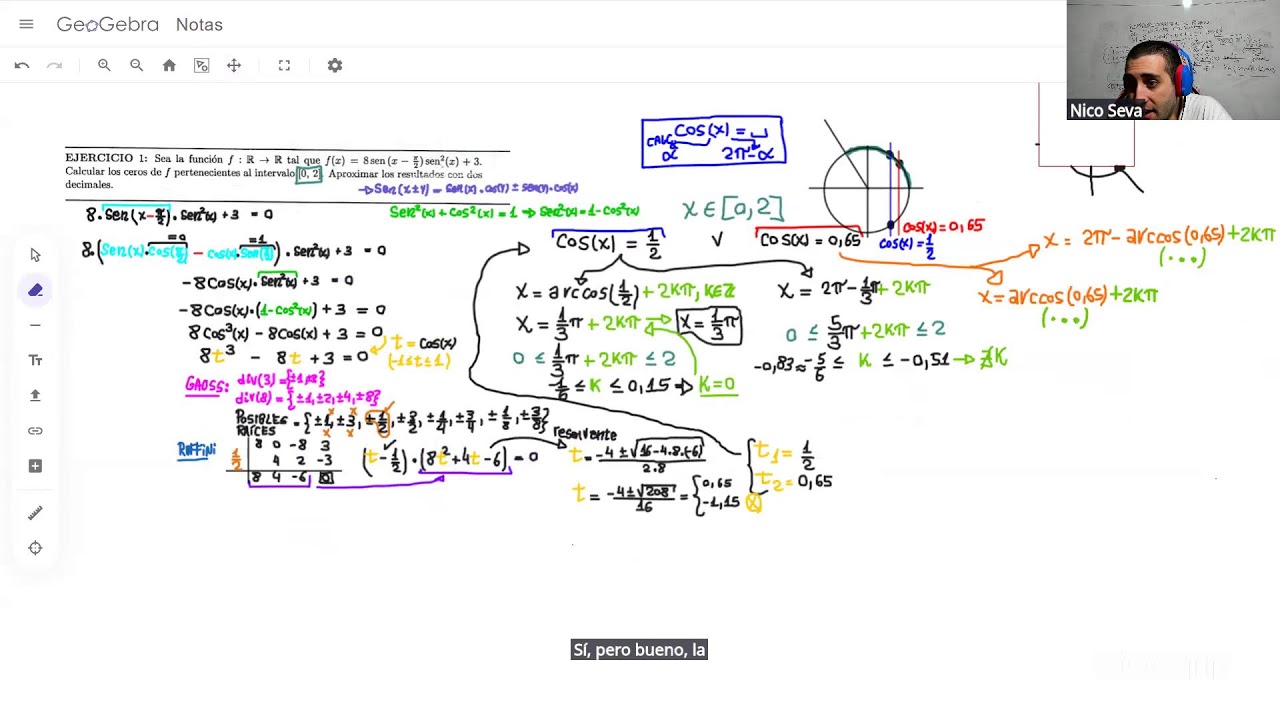 GeoGebra Notas
Nico Seva
EJERCICIO 1: Sea la función f : ℝ → ℝ tal que f(x) = 8 sen (x − π/2) sen²(x) + 3.
Calcular los ceros de f pertenecientes al intervalo [0, 2]. Aproximar los resultados con dos
decimales.
→ Sen(x±y) = Sen(x).cos(y) ± sen(y).cos(x)
8.Sen(x-π/2).Sen²(x)+3 = 0
Sen²(x)+Cos²(x)=1 ⇒ Sen²(x)=1-Cos²(x)
=0 =1
8.(Sen(x).Cos(π/2) - Cos(x).Sen(π/2)).Sen²(x)+3 = 0
-8Cos(x).Sen²(x)+3 = 0
-8Cos(x).(1-Cos²(x))+3 = 0
8Cos³(x) - 8Cos(x)+3 = 0
8t³ - 8t +3=0
t = Cos(x)
(-1≤t≤1)
GAOSS: div(3)={±1,±3}
div(8)={±1,±2,±4,±8}
POSIBLES RAÍCES = {±1,±3, ±1/2, ±3/2, ±1/4, ±3/4, ±1/8, ±3/8}
RUFFINI
8 0 -8 3
1/2 4 2 -3
8 4 -6 0
(t-1/2).(8t²+4t-6)=0
resolvente
t= -4±√(16-4.8.(-6)) / 2.8
t = -4±√208 / 16 = { 0,65
-1,15
t₁= 1/2
t₂= 0,65
CALC
Cos(x)=
α 2π-α
x ∈ [0,2]
Cos(x) = 1/2 v Cos(x)=0,65
x=arccos(1/2)+2kπ, k∈Z
x= 1/3π +2kπ → x=1/3π
0 ≤ 1/3π +2kπ ≤ 2
-1/6 ≤ k ≤ 0,15 ⇒ k=0
x= 2π-1/3π+2kπ
0 ≤ 5/3π+2kπ ≤ 2
-0,83≈-5/6 ≤ k ≤ -0,51 → ∄k
cos(x)=0,65
cos(x)=1/2
x= 2π-arccos(0,65)+2kπ
(...)
x=arccos(0,65)+2kπ
(...)
Sí, pero bueno, la